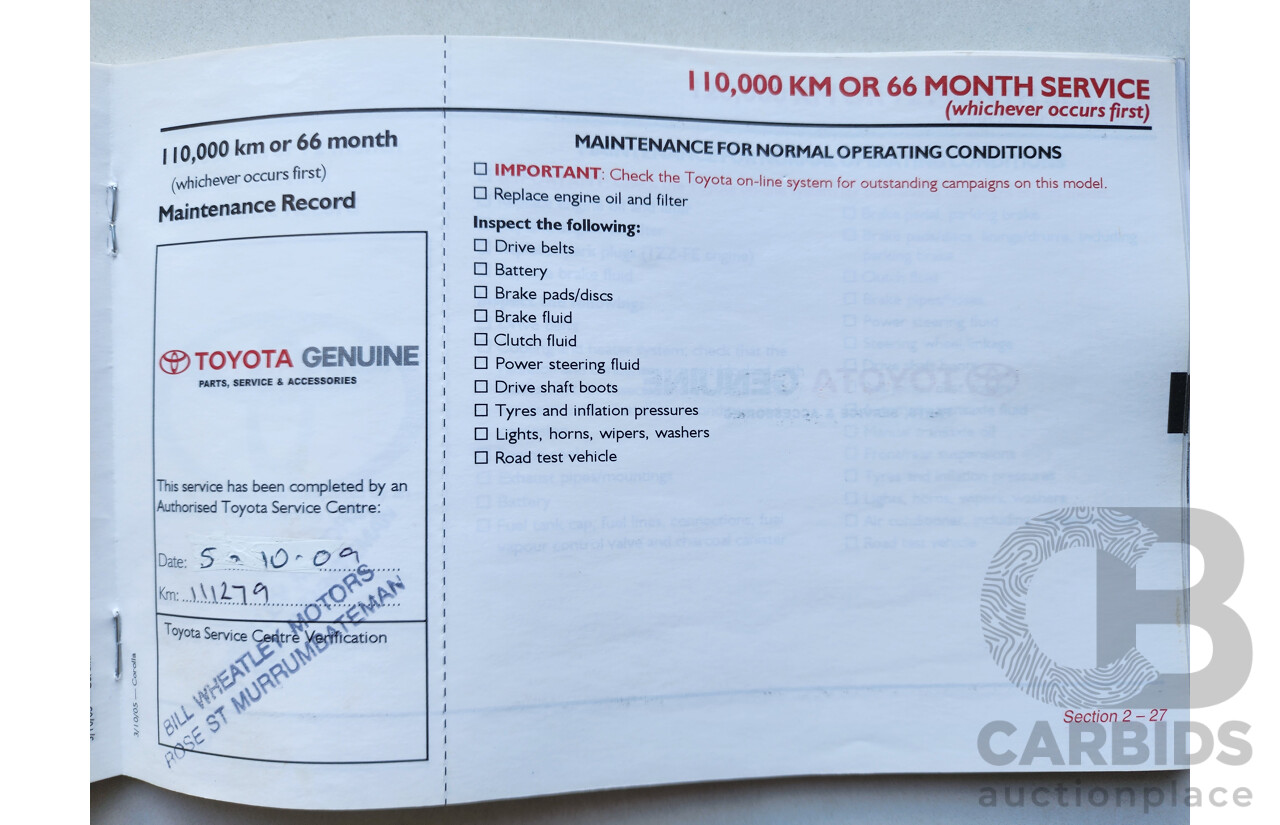 110,000 km or 66 month
(whichever occurs first)
Maintenance Record
TOYOTA GENUINE
PARTS, SERVICE & ACCESSORIES
This service has been completed by an
Authorised Toyota Service Centre:
Date: 5-10-09
Km: 111279
Toyota Service Centre Verification
BILL WHEATLEY MOTORS
ROSE ST MURRUMBATEMAN
3/10/05 — Corolla
110,000 KM OR 66 MONTH SERVICE
(whichever occurs first)
MAINTENANCE FOR NORMAL OPERATING CONDITIONS
IMPORTANT: Check the Toyota on-line system for outstanding campaigns on this model.
Replace engine oil and filter
Inspect the following:
Drive belts
Battery
Brake pads/discs
Brake fluid
Clutch fluid
Power steering fluid
Drive shaft boots
Tyres and inflation pressures
Lights, horns, wipers, washers
Road test vehicle
Section 2 – 27
CB
CARBIDS
auctionplace